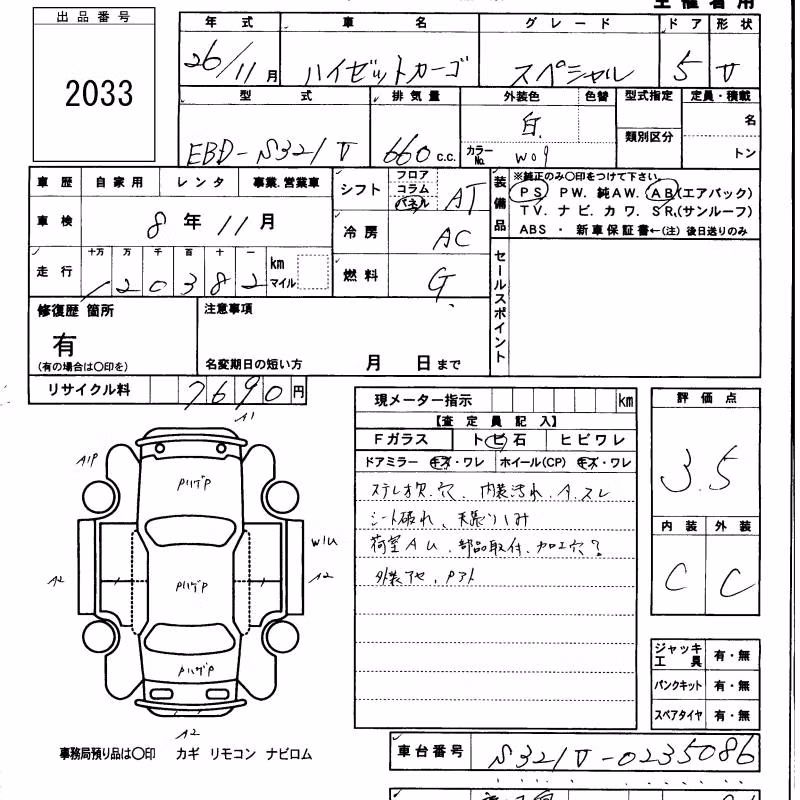 出品番号
2033
年式 車名 グレード ドア 形状
26/11月 ハイゼットカーゴ スペシャル 5 V
型式 排気量 外装色 色替 型式指定 定員・積載
EBD-S321V 660 c.c. 白 類別区分 名
カラーNo. W09 トン
車歴 自家用 レンタ 事業.営業車
シフト フロア コラム パネル AT
装備品 ※純正のみ〇印をつけて下さい
PS PW. 純AW. AB(エアバック)
TV. ナビ. カワ. SR.(サンルーフ)
ABS ・ 新車保証書←(注) 後日送りのみ
車検 8年11月
冷房 AC
走行 十万 万 千 百 十 一 km マイル
120382
燃料 G
セールスポイント
修復歴 箇所
有
(有の場合は〇印を)
注意事項
名変期日の短い方 月 日まで
リサイクル料 7690円
現メーター指示 km
【査定員記入】
Fガラス トビ石 ヒビワレ
ドアミラー キズ・ワレ ホイール(CP) キズ・ワレ
ステレオ欠.穴、内装汚れ.A.スレ
シート破れ、天張りしみ
荷室AU、部品取付、加工穴?
外装アセ、Pアト
評価点
3.5
内装 外装
C C
A1
A1P
PハゲP
W1U
A2
PハゲP
A2
PハゲP
A2
ジャッキ 工具 有・無
パンクキット 有・無
スペアタイヤ 有・無
事務局預り品は〇印 カギ リモコン ナビロム
車台番号 S321V-0235086